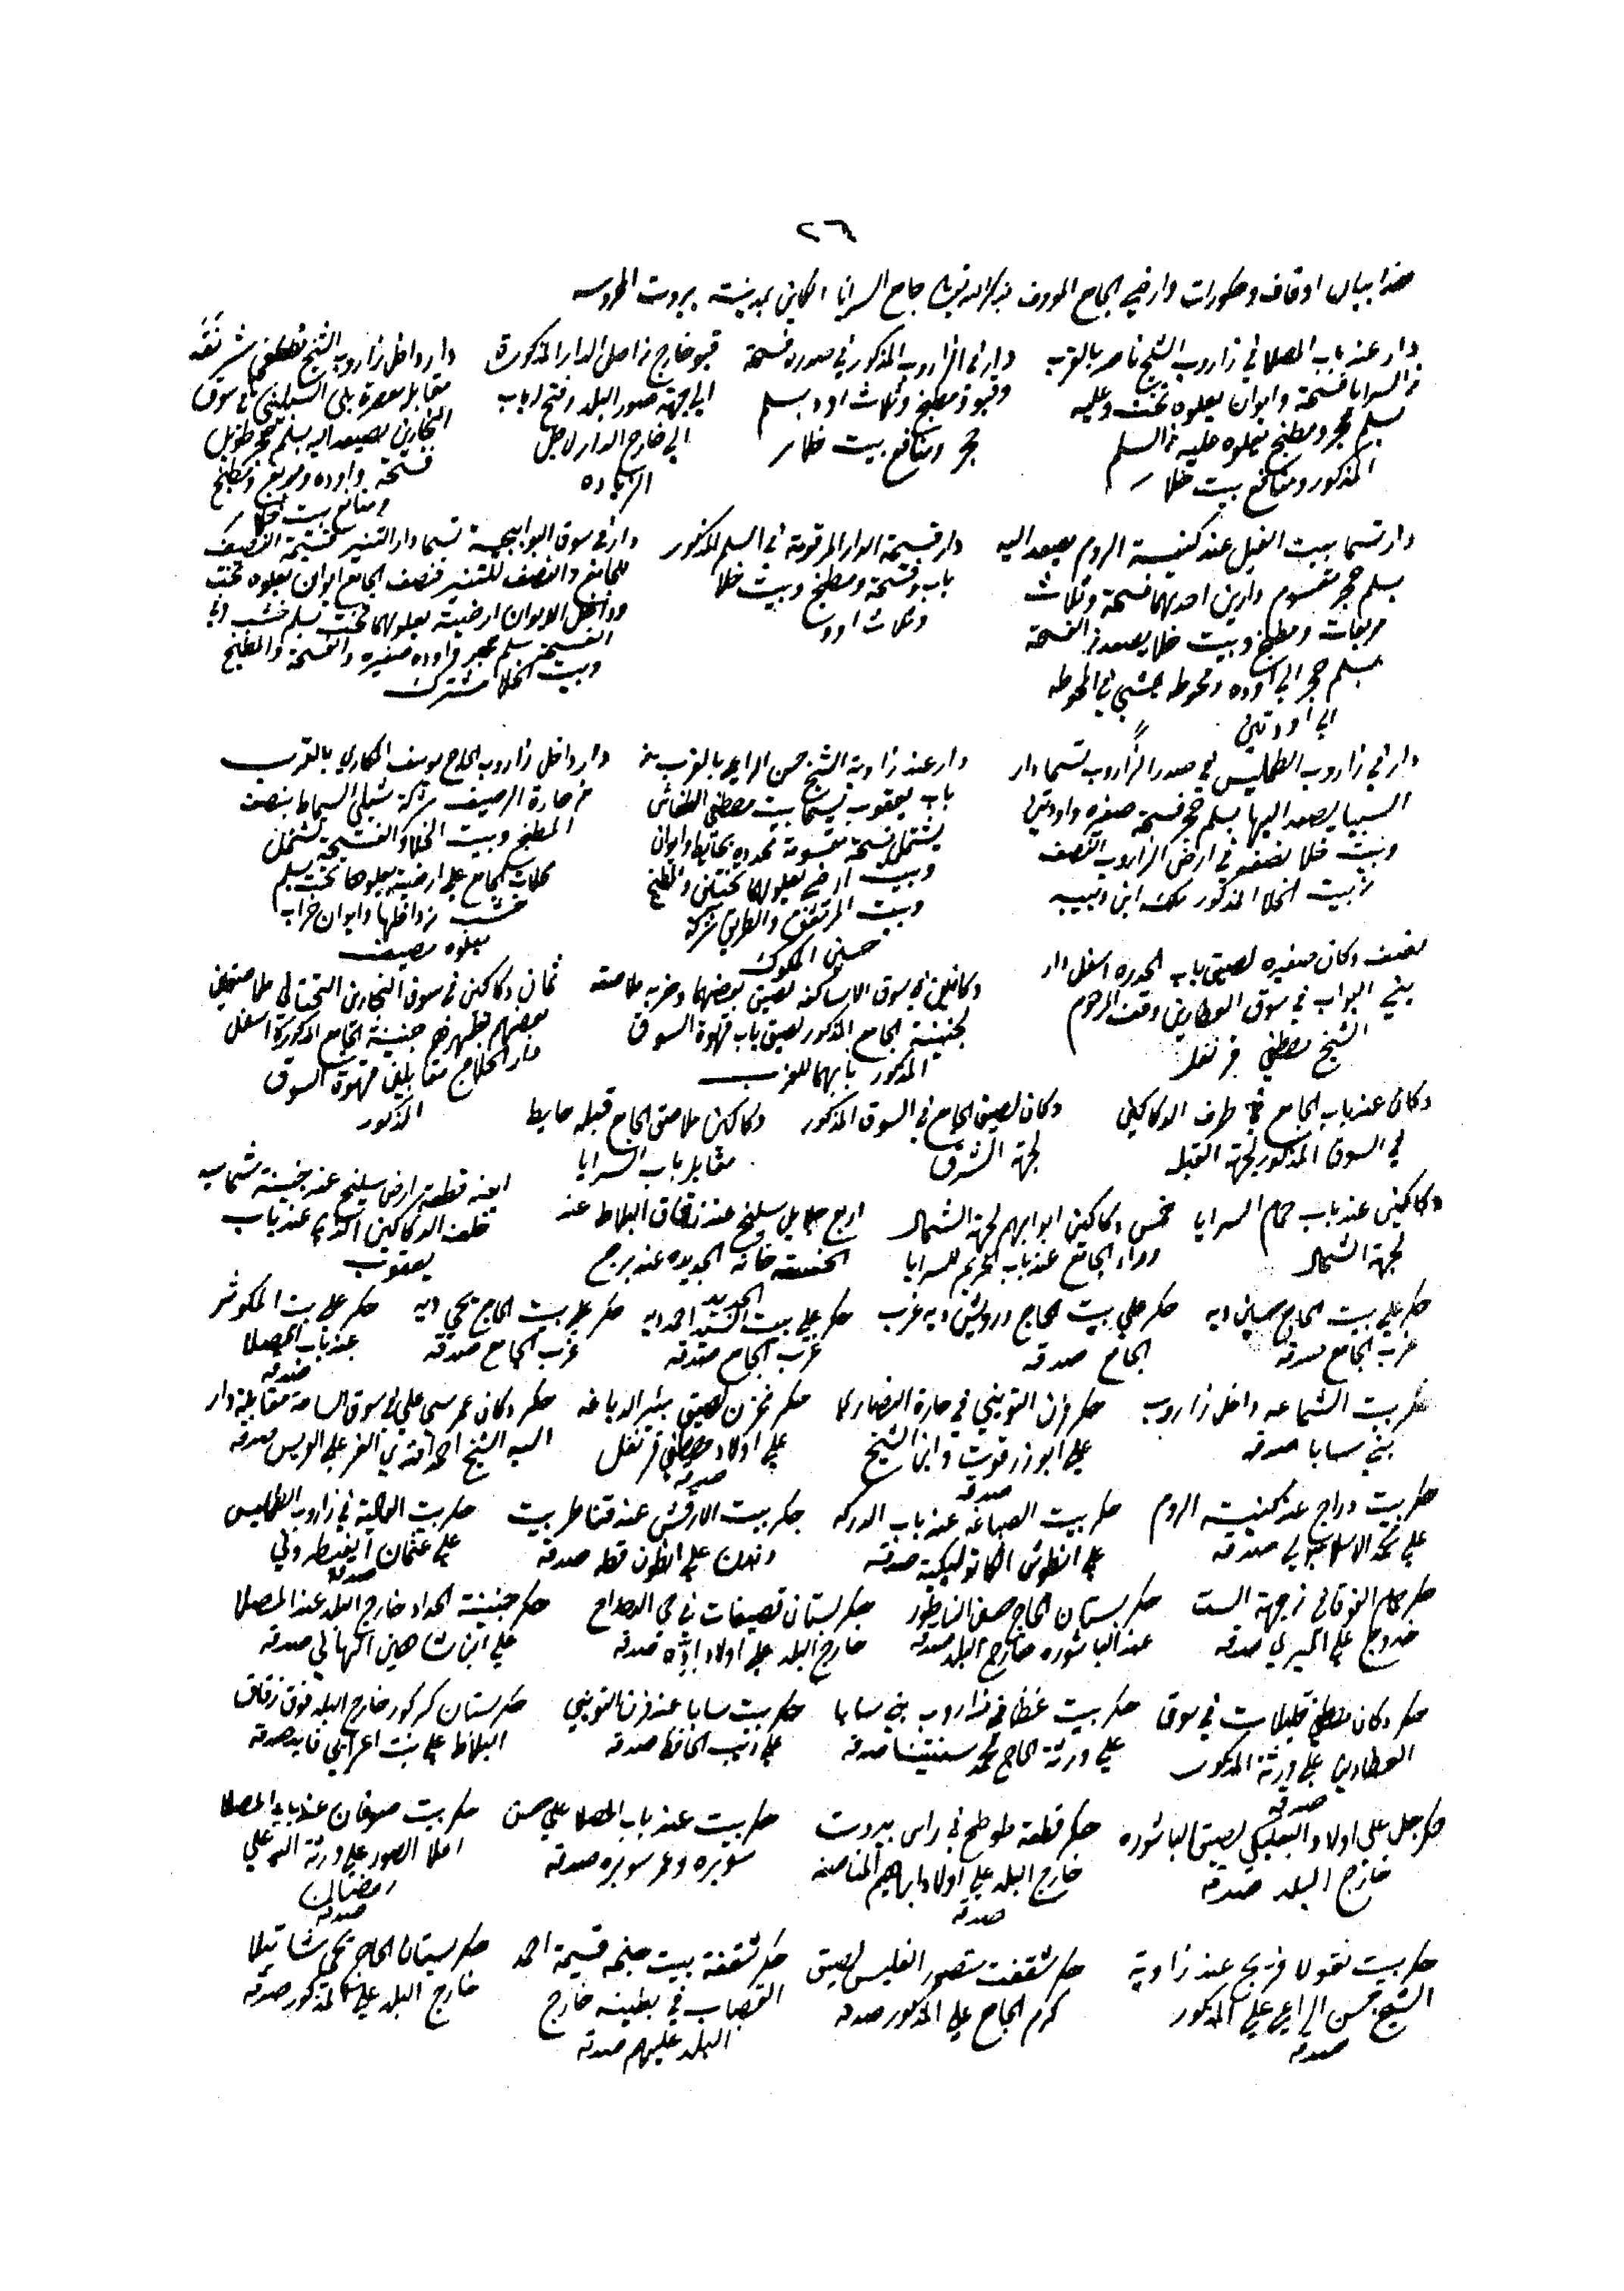 ٢٦
هذا بيان اوقاف وحكورات واراضي الجامع المعروف جامع السرايا الكاين بمدينة بيروت المحروسه
دار عند باب المصلا في زاروب الشيخ ناصر بالقرب
من السرايا فسحة وايوان يعلوه تخت وعليه
بسلم حجر ومطبخ يعلوه عليه من السلم
المذكور ومنافع بيت خلا
دار في الزاروب المذكور في صدره فسحة
وقبو ومطبخ وثلاث اود بسلم
حجر ومنافع بيت خلا
قبو خارج من اصل الدار المذكورة
الى جهة صور البلد وفتح له باب
الى خارج الدار لاجل
الزياده
دار داخل زاروب الشيخ مصطفى
مقابل معصرة في سوق
النجارين يصعد اليه بسلم حجر طويل
فسحة واوده ومربع ومطبخ
ومنافع بيت خلا
دار تسما بيت الفيل عند كنيسة الروم يصعد اليه
بسلم حجر مقسوم دارين احديهما فسحة وثلاث
مربعات ومطبخ وبيت خلا يصعد من الفسحة
بسلم حجر الى اوده ومحوطه خشبي في المحوطه
الى اودتين
دار قسيمة الدار المرقومة في السلم المذكور
باب وفسحة ومطبخ وبيت خلا
وثلاث اود
دار في سوق البوابجية تسما دار التنير قسيمة النصف
للجامع والنصف للتنير فنصف الجامع ايوان يعلوه تخت
وداخل الايوان ارضية يعلوها تخت بسلم خشب وفي
الفسحة سلم حجر واوده صغيره والفسحة والمطبخ
وبيت الخلا مشترك
دار في زاروب الطمليس في صدر الزاروب تسما دار
السبيا يصعد اليها بسلم حجر فسحة صغيره واودتين
وبيت خلا نصفه في ارض الزاروب النصف
من بيت الخلا المذكور ملك ابن دبيبه
دار عند زاوية الشيخ حسن الراعي بالقرب من
باب يعقوب تسما بيت مصطفى الطفاش
يشتمل فسحة مقسومة محدده بحايط وايوان
وبيت ارضي يعلوها تختين والمطبخ
وبيت المرتفق والطريق شركة
حسين المكوك
دار داخل زاروب الحاج يوسف الكاري بالقرب
من حارة الرصيف شركة شبلي السماط بنصف
المطبخ وبيت الخلا والفسحة تشتمل
محلات الجامع على ارضية يعلوها تخت بسلم
خشب من داخلها وايوان خراب
يعلوه مصيف
نصف دكان صغيره لصيق باب الحدره اسفل دار
بني البواب في سوق العطارين وقف المرحوم
الشيخ مصطفى قرنفل
دكانين في سوق الاساكفه لصيق بعضهما وخربه ملاصقه
لجنينة الجامع المذكور لصيق باب قهوة السوق
المذكور بابهما للغرب
ثمان دكاكين في سوق النجارين التحتاني ملاصقين
بعضهم بظهرهم جنينة الجامع المذكورة اسفل
دار الحلاج مقابلين قهوة السوق
المذكور
دكان عند باب الجامع في طرف الدكاكين
في السوق المذكور لجهة القبله
دكان لصيق الجامع في السوق المذكور
لجهة الشرق
دكاكين ملاصق الجامع قبله حايط
مقابل باب السرايا
دكاكين عند باب حمام السرايا
لجهة الشمال
خمس دكاكين ابوابهم لجهة الشمال
وراء الجامع عند باب الحريم للسرايا
اربع عند زقاق البلاط عند
الجديده عند برج
الجديد
قطعة ارض سليخ عند جنينة شماسيه
خلف الدكاكين عند باب
يعقوب
حكر على بيت الحاج حسين ديه
غرب الجامع صدقه
حكر على بيت الحاج درويش ديه غرب
الجامع صدقه
حكر على بيت السيد احمد ديه
غرب الجامع صدقه
حكر على بيت الحاج يحي ديه
غرب الجامع صدقه
حكر على بيت المكوش
عند باب المصلا
صدقه
حكر بيت الشماعه داخل زاروب
بني سابا صدقه
حكر فرن التويني في حارة النصارى
على ابو زرقوت وابن الشيخ
صدقه
حكر مخزن لصيق بئر الدباغه
على اولاد مصطفى قرنفل
صدقه
حكر دكان عمر سي علي في سوق الساحة مقابلة دار
السيد الشيخ احمد افندي الغر على الريس صدقه
حكر بيت دراج عند كنيسة الروم
على محمد الاسلامبولي صدقه
حكر بيت الصباغه عند باب الدركه
على انطوش الكاتوليكيه صدقه
حكر بيت الارقش عند قناطر بيت
على انطون قطه صدقه
حكر بيت في زاروب الطمليس
على عثمان
صدقه
حكر حمام الفوقاني من جهة الست
خدوج على الميري صدقه
حكر بستان الحاج حسن الناطور
عند الباشوره خارج البلد صدقه
حكر بستان
خارج البلد على اولاد اده صدقه
حكر جنينة الحداد خارج البلد عند المصلا
على ابن شاهين صدقه
حكر دكان مصطفى قليلات في سوق
العطارين على ورثة المذكور
صدقه
حكر بيت في زاروب بني سابا
على ورثة الحاج محمد سنتينا صدقه
حكر بيت سابا عند فرن التويني
على ديب الحافظ صدقه
حكر بستان كركور خارج البلد فوق زقاق
البلاط على بنت اعرابي صدقه
حكر جل على اولاد البعلبكي لصيق الباشوره
خارج البلد صدقه
حكر قطعة في راس بيروت
خارج البلد على اولاد ابراهيم المناصفه
صدقه
حكر بيت عند باب المصلا على حسن
سوبره وعمر سوبره صدقه
حكر بيت عند باب المصلا
اعلا الصور على ورثة السيد علي
رمضان
صدقه
حكر بيت نقولا فريج عند زاوية
الشيخ حسن الراعي على المذكور
صدقه
حكر شقفت منصور الفليس لصيق
كرم الحاج على المذكور صدقه
حكر شقفة بيت قسيمة احمد
القصاب في بطينه خارج
البلد عليهم صدقه
حكر بستان الحاج يحي شاتيلا
خارج البلد على المذكور صدقه